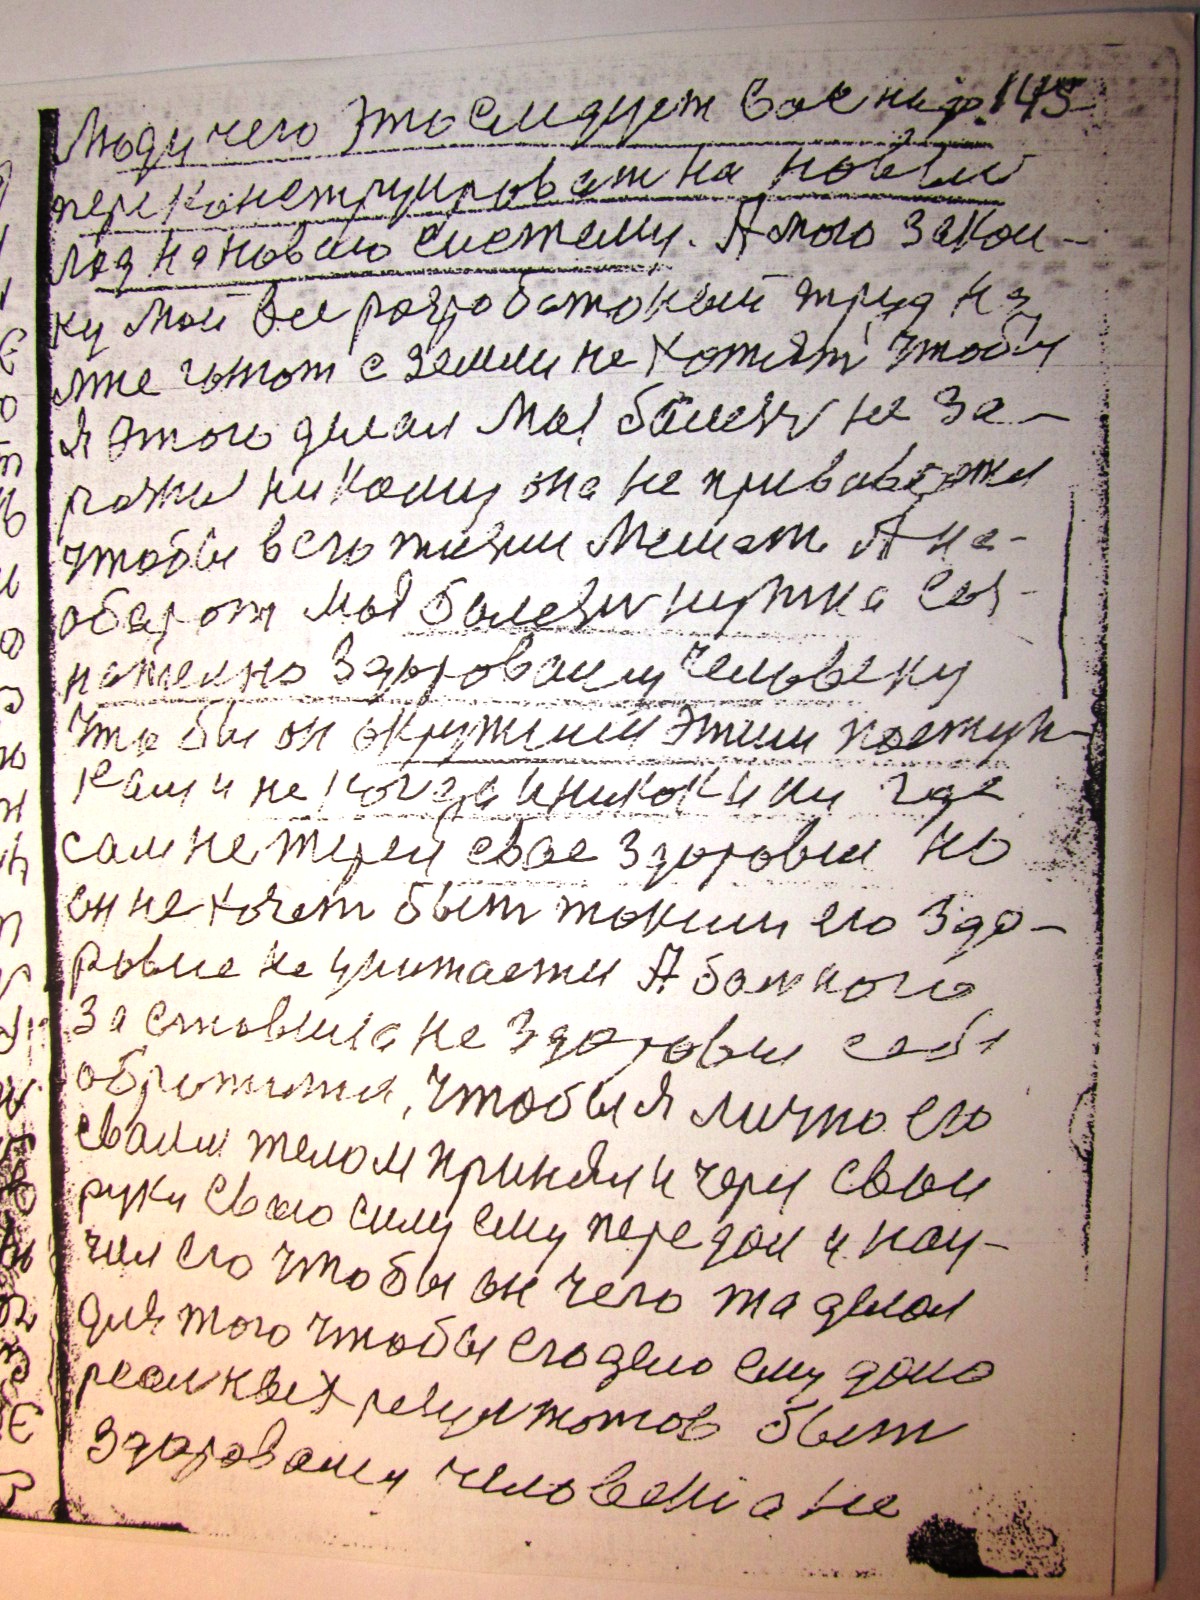 Люди чего это следует вас нар. 145
переконструироват на новый
лад на новаю систему. А мою закон-
ку мой вес разработоный труд на
мне гонют с земли не хотят чтобы
я этого делал Моя болезн не за-
разная никому она не
чтобы в его жизни мешат. А на-
оборот моя болезн нужна соз-
нателно здоровому человеку
Что бы он окружился этими поступ-
ками не когда и никак и ни где
сам не терял свае здоровия но
он не хочет быт таким его здо-
ровие не считается А болного
заставила не здоровия себя
обратится, чтобы я лично его
сваим телом принял и через свои
руки сваю силу ему передал и нау-
чил его чтобы он чего та делал
для того чтобы его дело ему дало
реалных резултотов быт
здоровым человеком а не